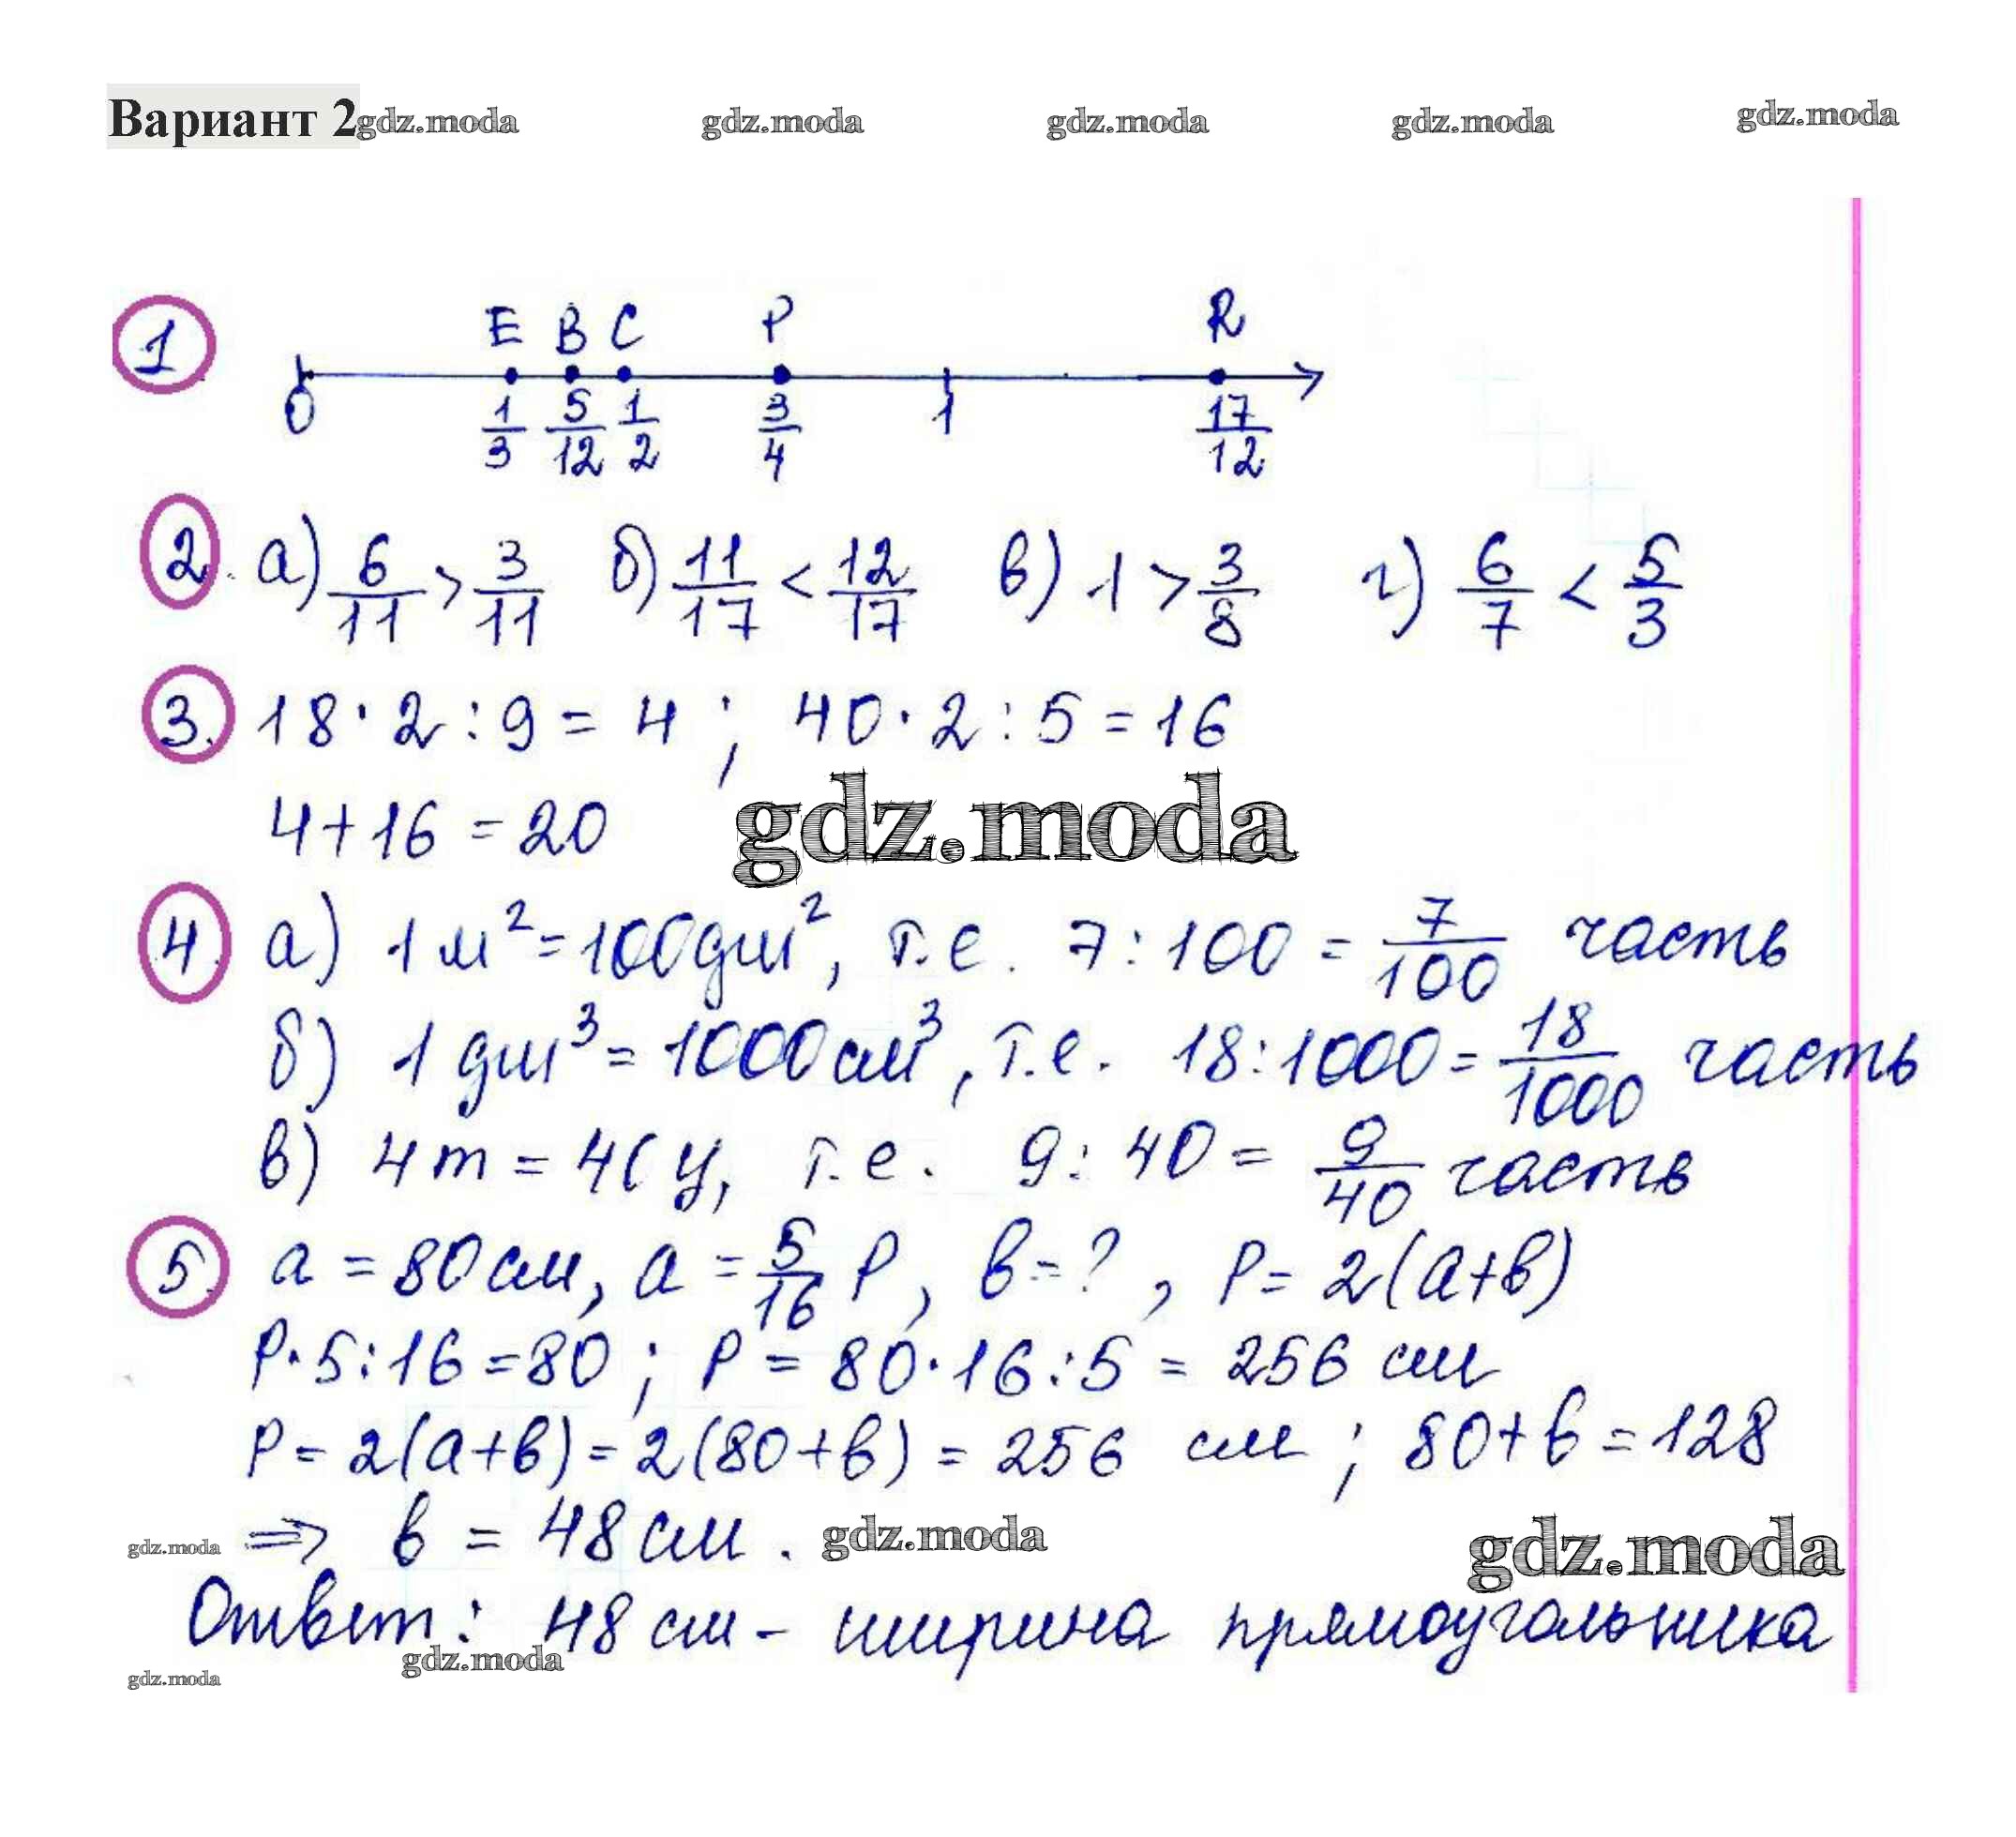 Вариант 2 gdz.moda gdz.moda gdz.moda gdz.moda gdz.moda
1 E B C P R
0 1/3 5/12 1/2 3/4 1 17/12
2. а) 6/11 > 3/11 б) 11/17 < 12/17 в) 1 > 3/8 г) 6/7 < 5/3
3. 18 · 2 : 9 = 4 ; 40 · 2 : 5 = 16
4 + 16 = 20
gdz.moda
4. а) 1 м² = 100 дм², т.е. 7 : 100 = 7/100 часть
б) 1 дм³ = 1000 см³, т.е. 18 : 1000 = 18/1000 часть
в) 4 т = 40 ц, т.е. 9 : 40 = 9/40 часть
5. a = 80 см, a = 5/16 P, в = ? , P = 2(a+в)
P · 5 : 16 = 80 ; P = 80 · 16 : 5 = 256 см
P = 2(a+в) = 2(80+в) = 256 см ; 80 + в = 128
gdz.moda ⇒ в = 48 см. gdz.moda gdz.moda
Ответ: 48 см - ширина прямоугольника
gdz.moda gdz.moda